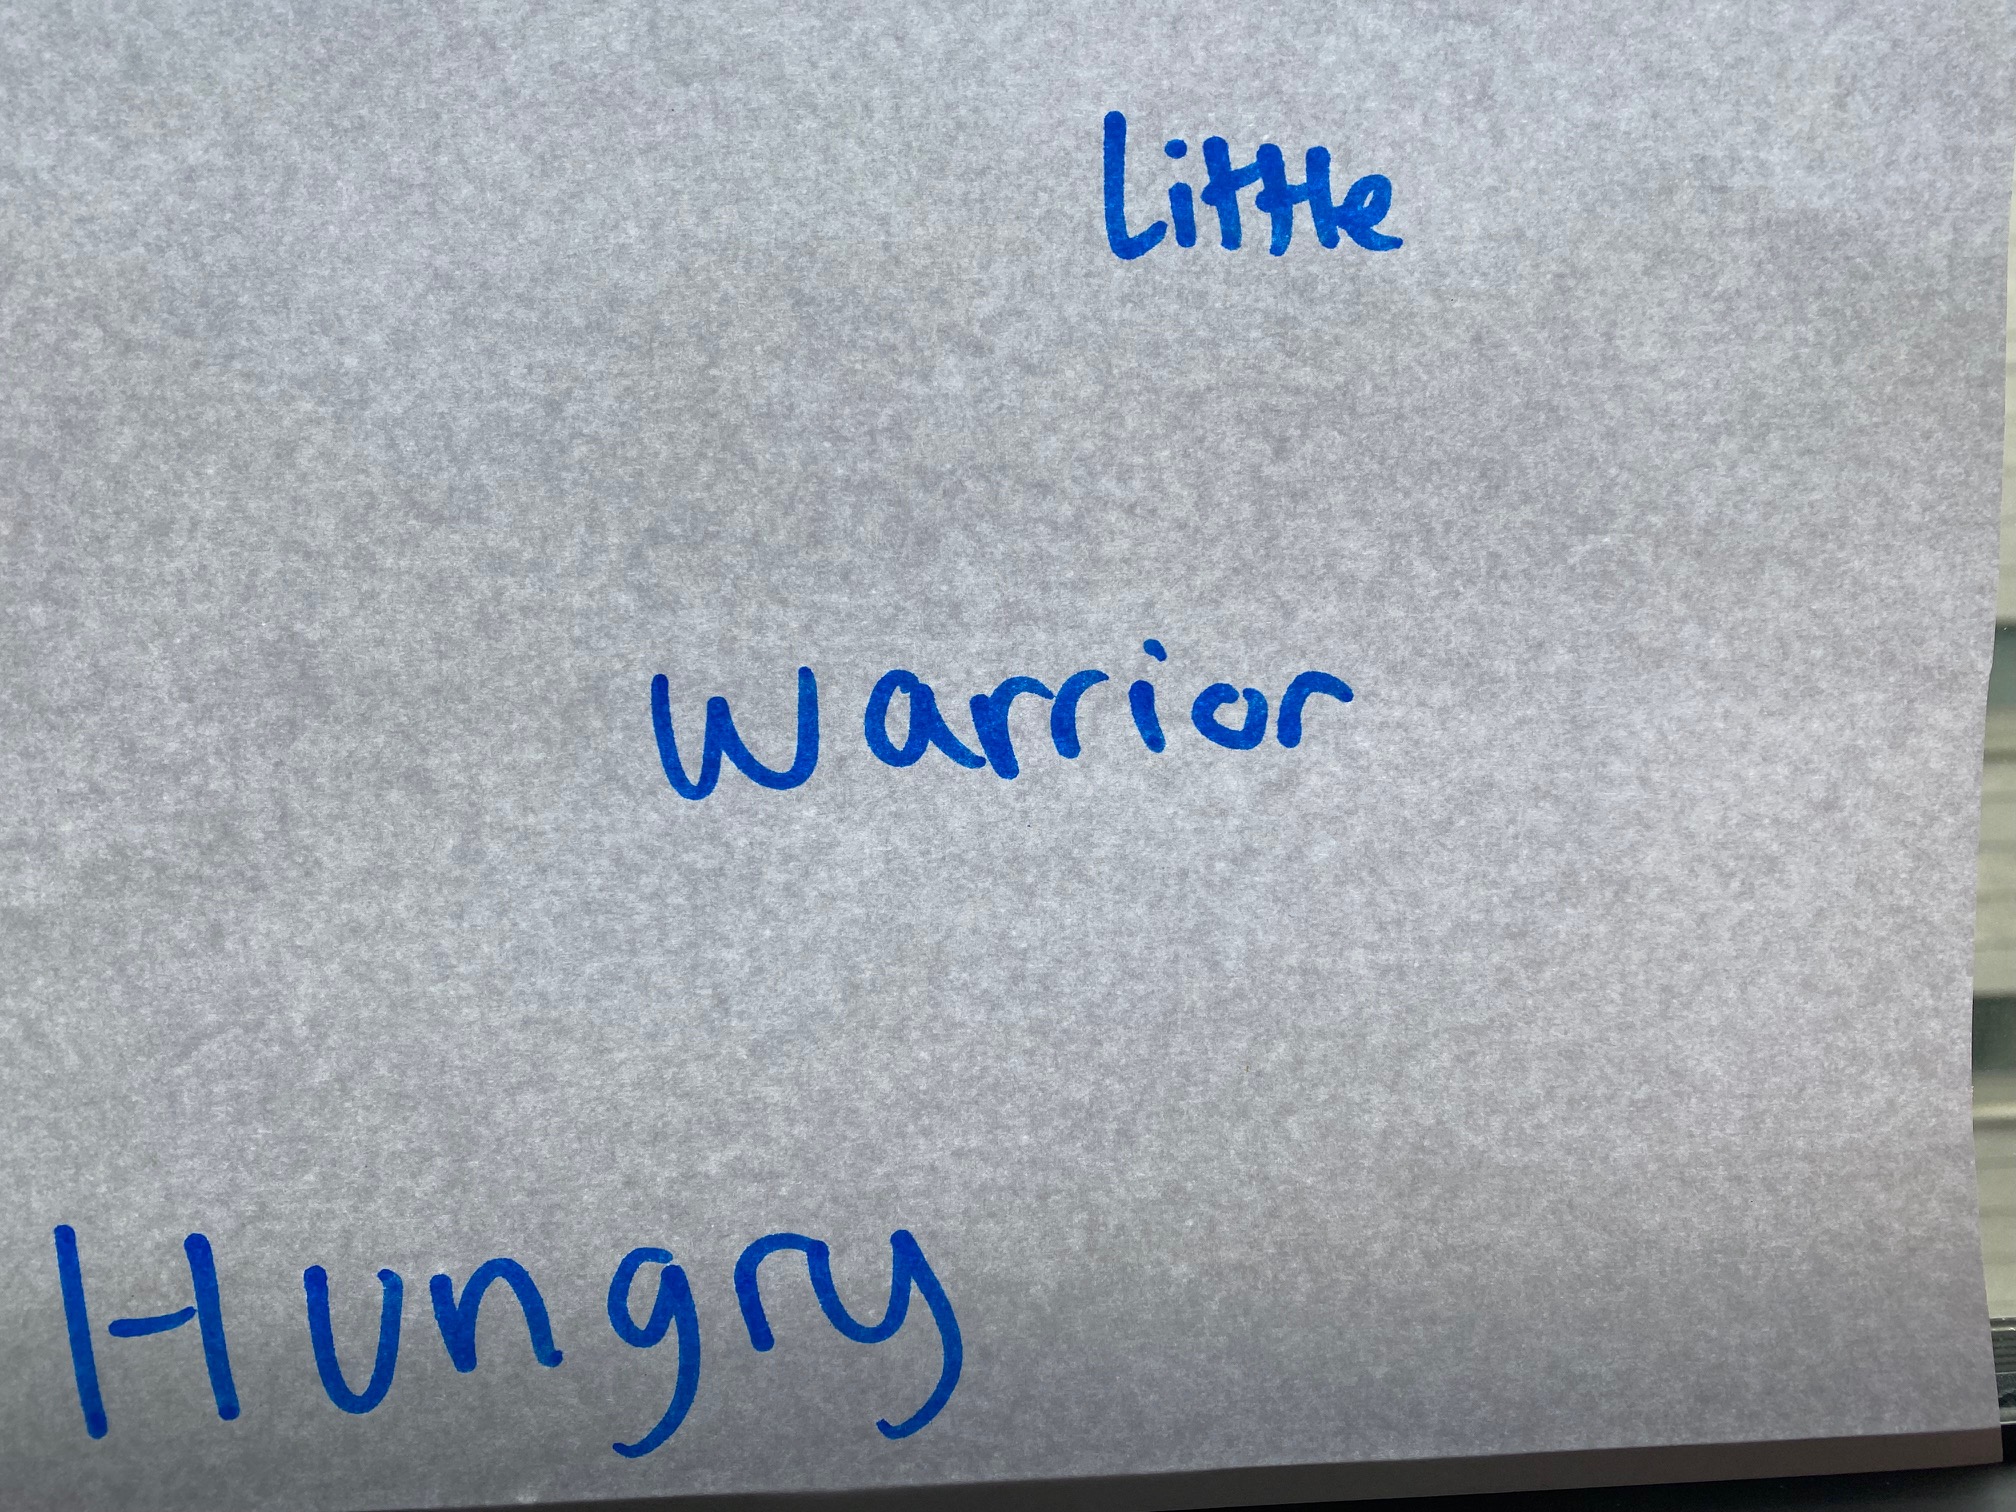 Little
Warrior
Hungry